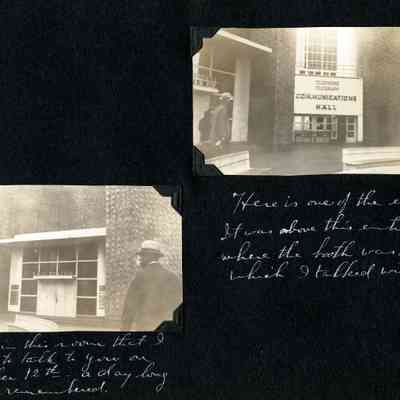 TELEPHONE
TELEGRAPH
COMMUNICATIONS
HALL
Here is one of the e
It was above this ent
where the booth was
which I talked wi
in this room that I
to talk to you on
12th - a day long
remembered.